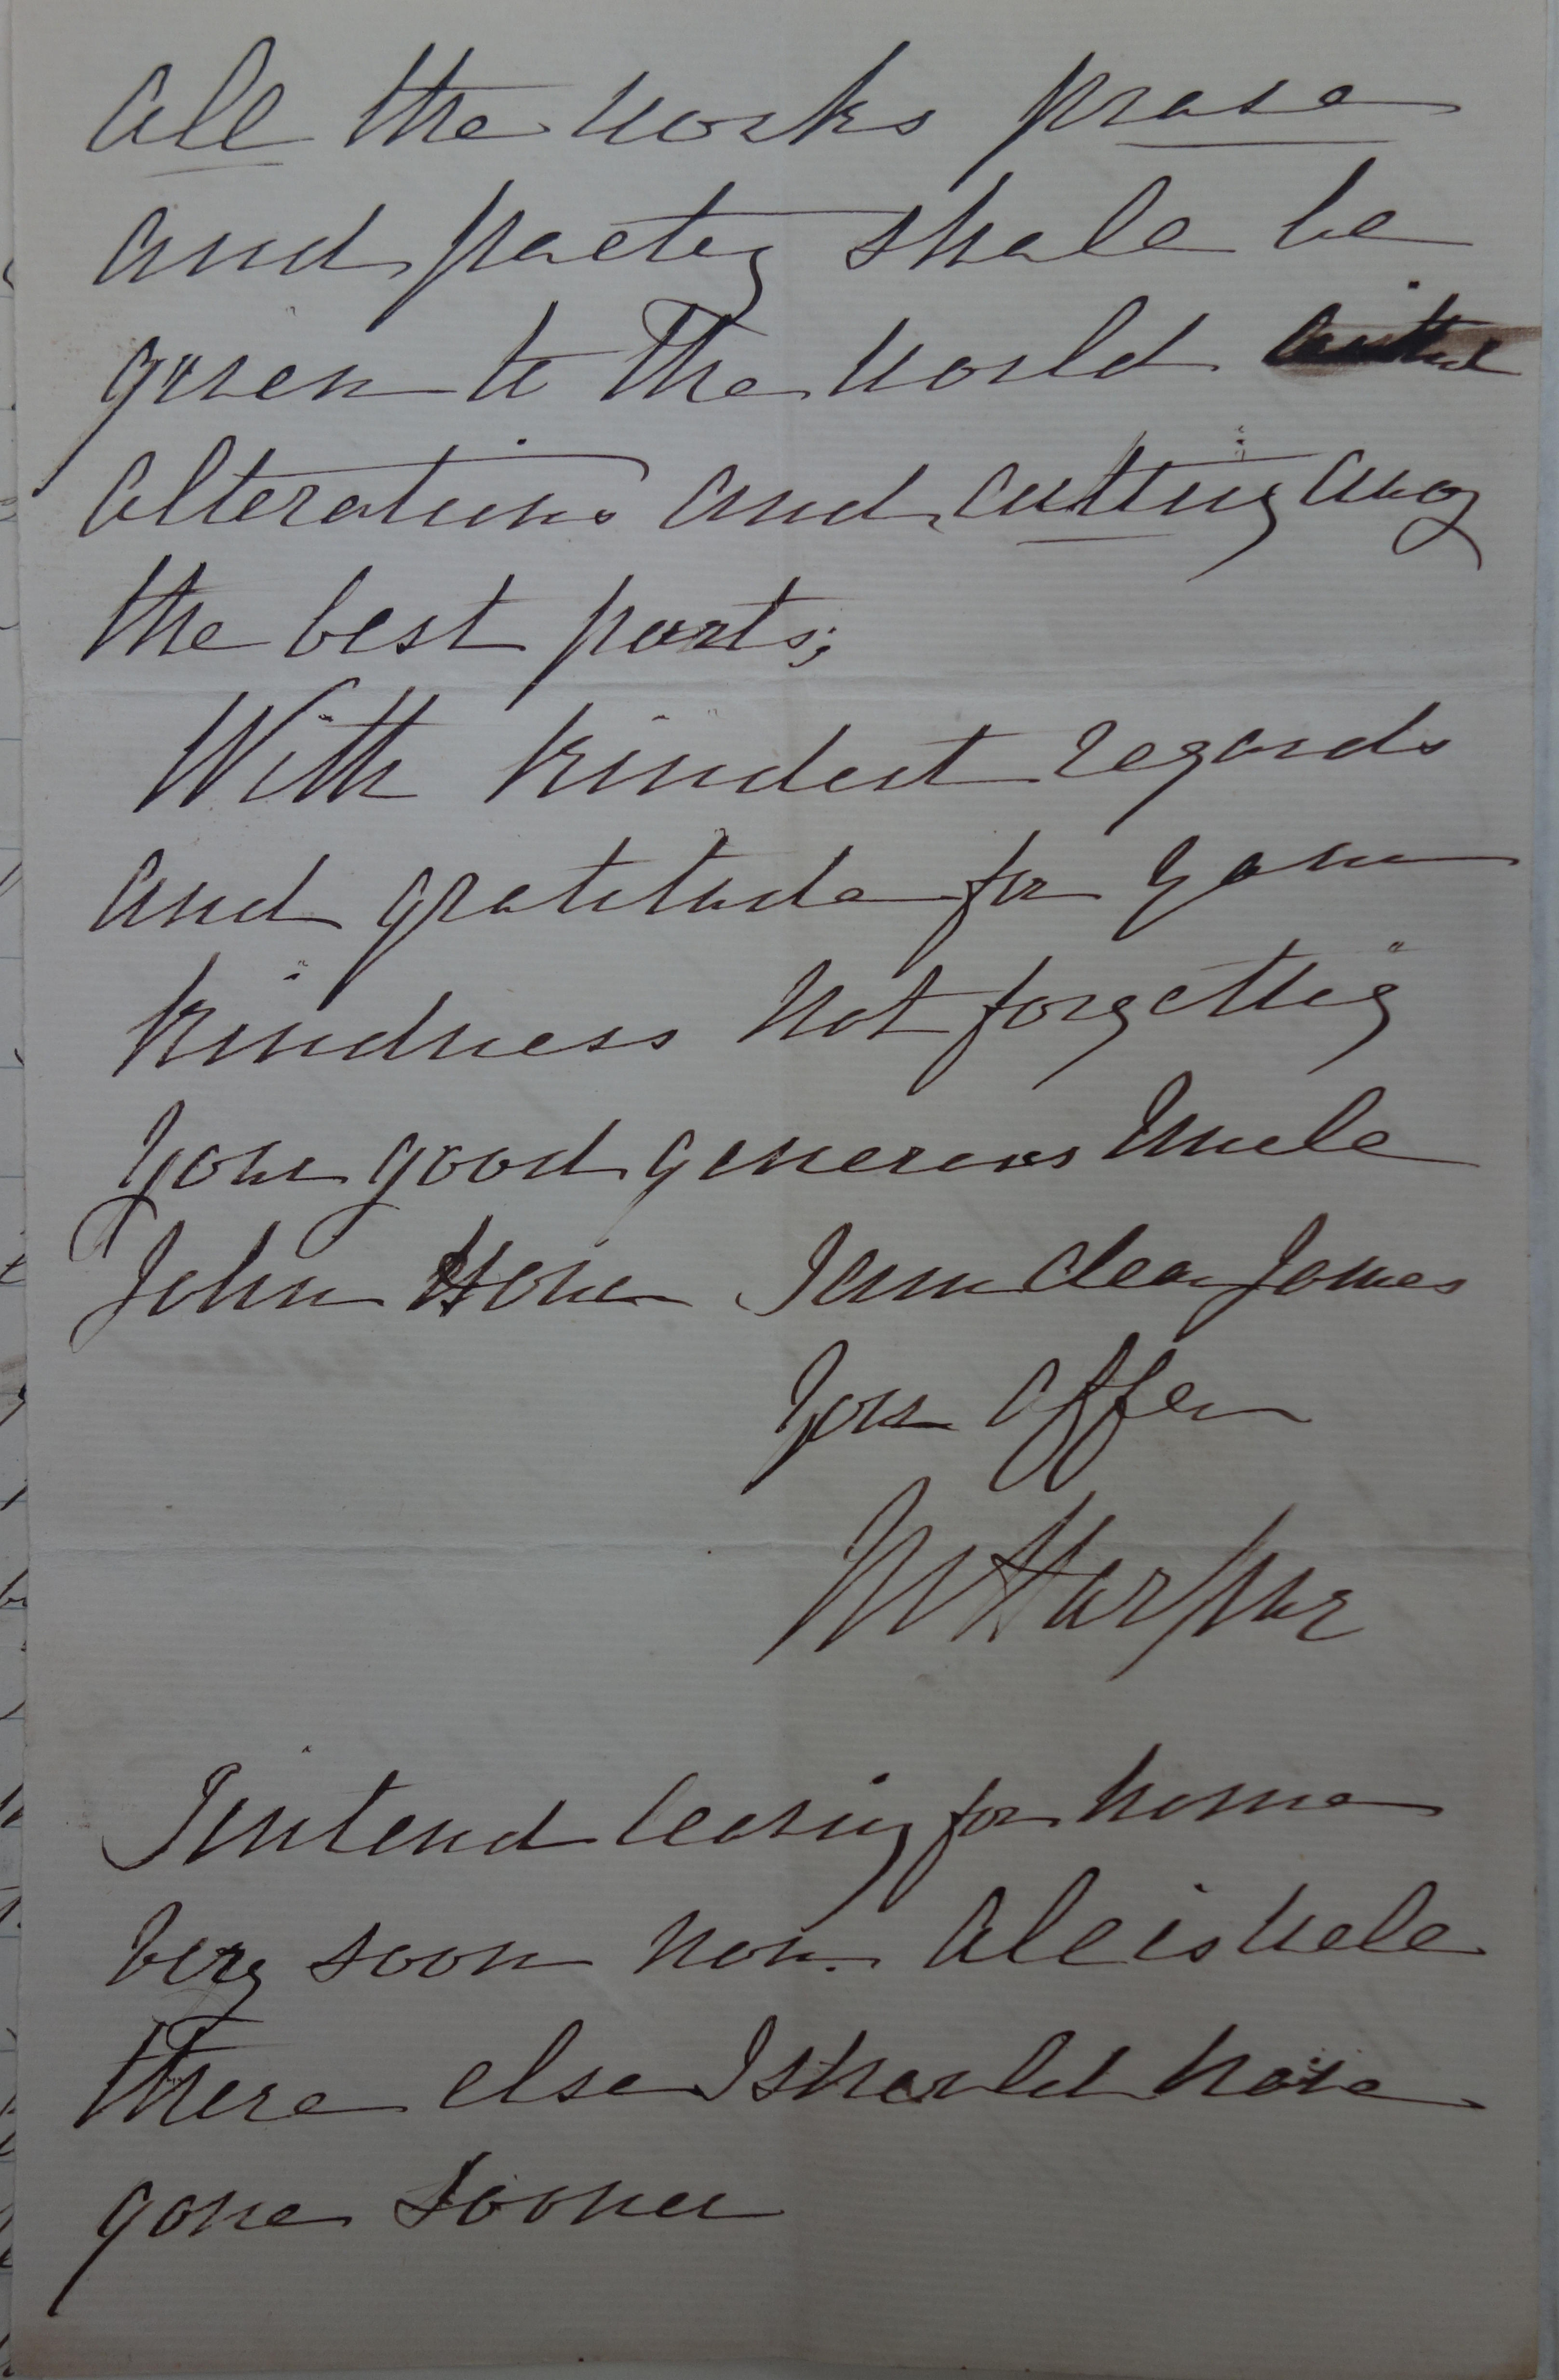 All the works prose
and poetry shall be
given to the world without
alterations and cutting away
the best parts;
With kindest regards
and gratitude for your
kindness not forgetting
your good generous Uncle
John Howe I am dear James
Your affec
M Harpur
I intend leaving for home
very soon now. All is well
there else I should have
gone sooner